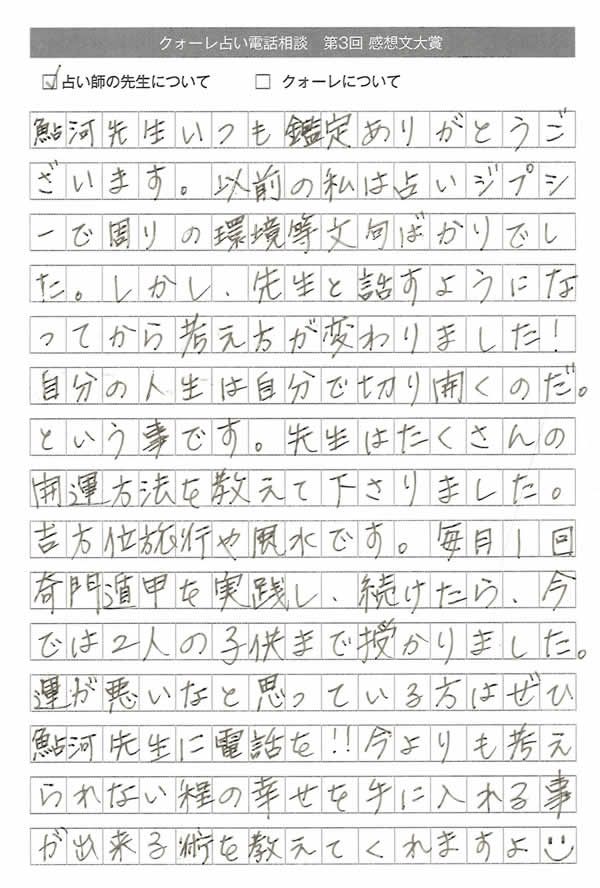 クォーレ占い電話相談　第3回 感想文大賞
☑ 占い師の先生について　□ クォーレについて
鮎河先生いつも鑑定ありがとうご
ざいます。以前の私は占いジプシ
ーで周りの環境等文句ばかりでし
た。しかし、先生と話すようにな
ってから考え方が変わりました!
自分の人生は自分で切り開くのだ。
という事です。先生はたくさんの
開運方法を教えて下さりました。
吉方位旅行や風水です。毎月1回
奇門遁甲を実践し、続けたら、今
では2人の子供まで授かりました。
運が悪いなと思っている方はぜひ
鮎河先生に電話を!!今よりも考え
られない程の幸せを手に入れる事
が出来る術を教えてくれますよ